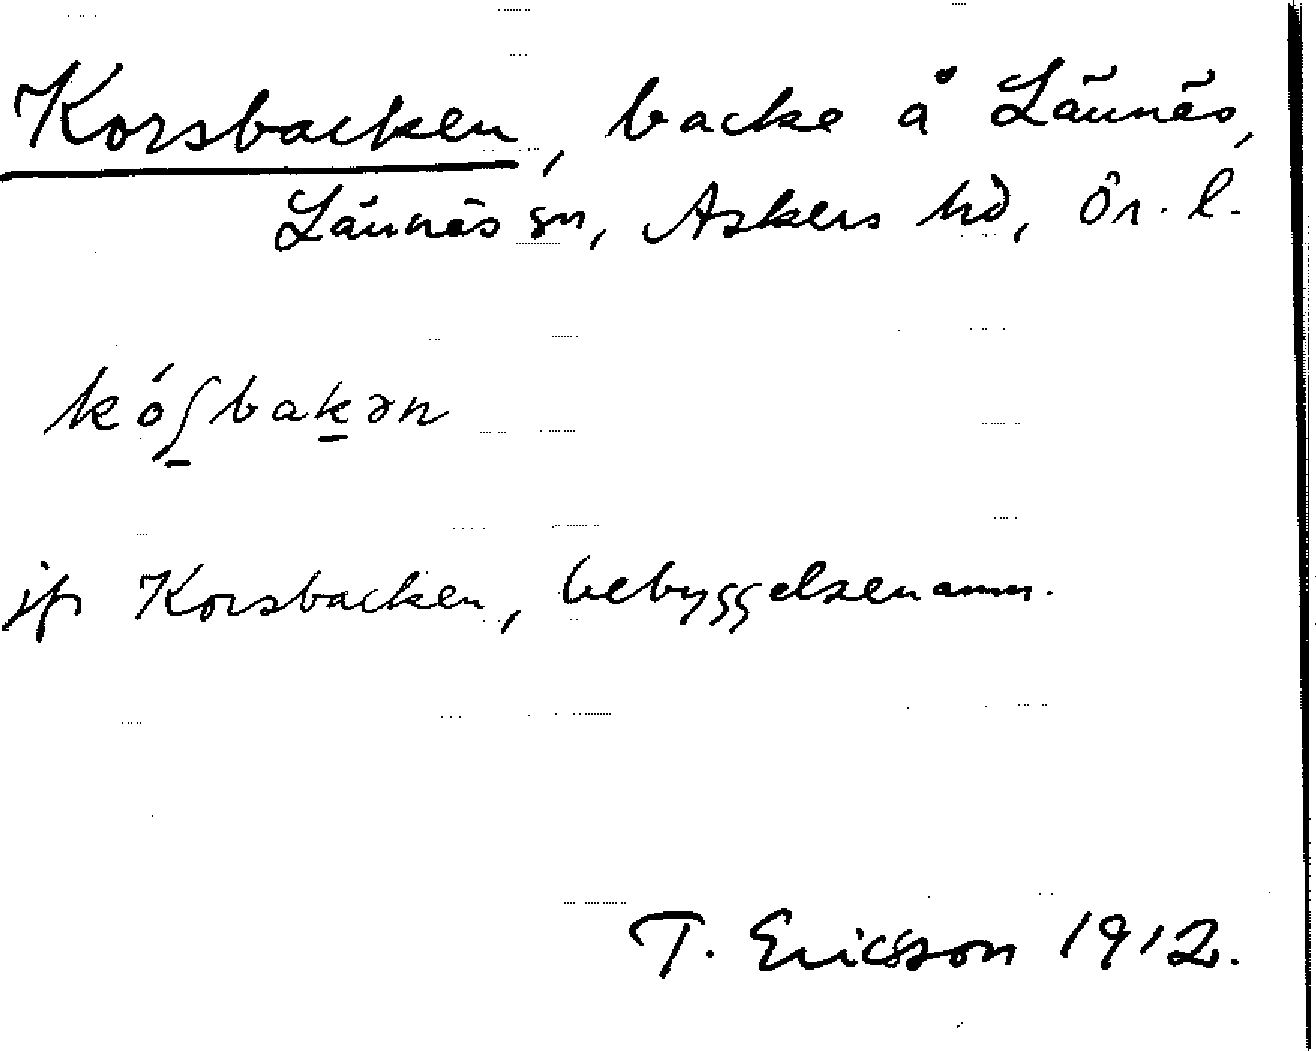 Korsbacken, backe å Lännäs,
Lännäs sn, Askers hd, Ör. l.
kóʃbakən
jfr Korsbacken, bebyggelsenamn.
T. Ericsson 1912.